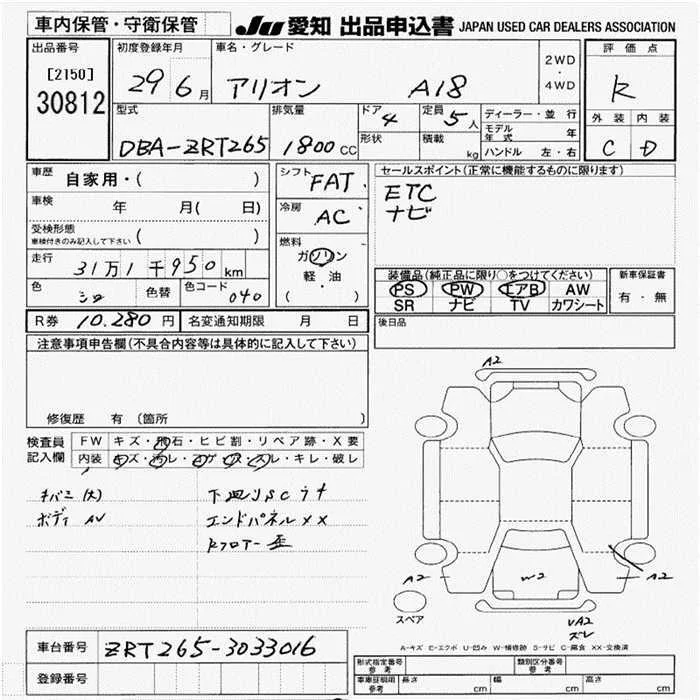 車内保管・守衛保管
JU 愛知 出品申込書 JAPAN USED CAR DEALERS ASSOCIATION
出品番号
[2150]
30812
初度登録年月
29 6月
車名・グレード
アリオン A18
2WD
・
4WD
評価点
R
外装 内装
C D
型式
DBA-ZRT265
排気量
1800cc
ドア
4
形状
定員
5人
積載
kg
ディーラー・並行
モデル年式 年
ハンドル 左・右
車歴
自家用・( )
車検
年 月( 日)
受検形態
車検付きのみ記入して下さい ( )
走行
31万1千950km
色
シロ
色替
色コード
040
シフト
FAT
冷房
AC
燃料
ガソリン
軽・油
( )
セールスポイント(正常に機能するものに限ります)
ETC
ナビ
装備品(純正品に限り○をつけてください)
PS PW エアB AW
SR ナビ TV カワシート
新車保証書
有・無
R券 10.280円
名変通知期限 月 日
後日品
注意事項申告欄(不具合内容等は具体的に記入して下さい)
修復歴 有 〔箇所 〕
検査員
記入欄
FW キズ・飛石・ヒビ割・リペア跡・X要
内装 キズ・汚レ・コゲ・穴・スレ・キレ・破レ
ボディ AV
エンドパネルXX
Rフロアー歪
A2
A2
W2
A2
スペア
A-キズ E-エクボ U-凹み W-補修跡 S-サビ C-腐食 XX-交換済
車台番号
ZRT265-3033016
登録番号
形式指定番号
参考
類別区分番号
参考
車庫証明用
参考
長さ cm
幅 cm
高さ cm